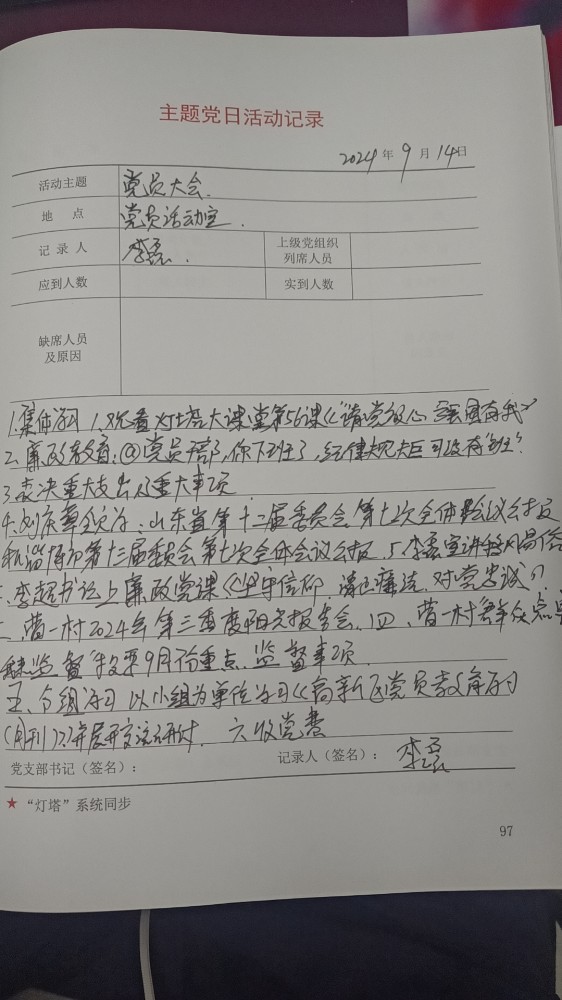 主题党日活动记录
2024年9月14日
活动主题 党员大会.
地 点 党员活动室.
记录人 李磊. 上级党组织列席人员
应到人数 实到人数
缺席人员及原因
1.集体学习 1.观看灯塔大课堂第56课《请党放心 强国有我》
2.廉政教育:@党员干部,你下班了,纪律规矩可没有"班".
3.表决重大支出及重大事项
山东省第十二届委员会第七次全体会议公报
第十三届委员会第七次全体会议公报 5李磊宣讲移风易俗
李超书记上廉政党课《坚守信仰,清正廉洁,对党忠诚》
曹一村2024年第三季度阳光报告会. 四、曹一村
监督 9月份重点监督事项.
五、分组学习 以小组为单位学习《高新区党员教
(月刊)》并展开交流研讨. 六 收党费
党支部书记(签名): 记录人(签名): 李磊
★"灯塔"系统同步
97